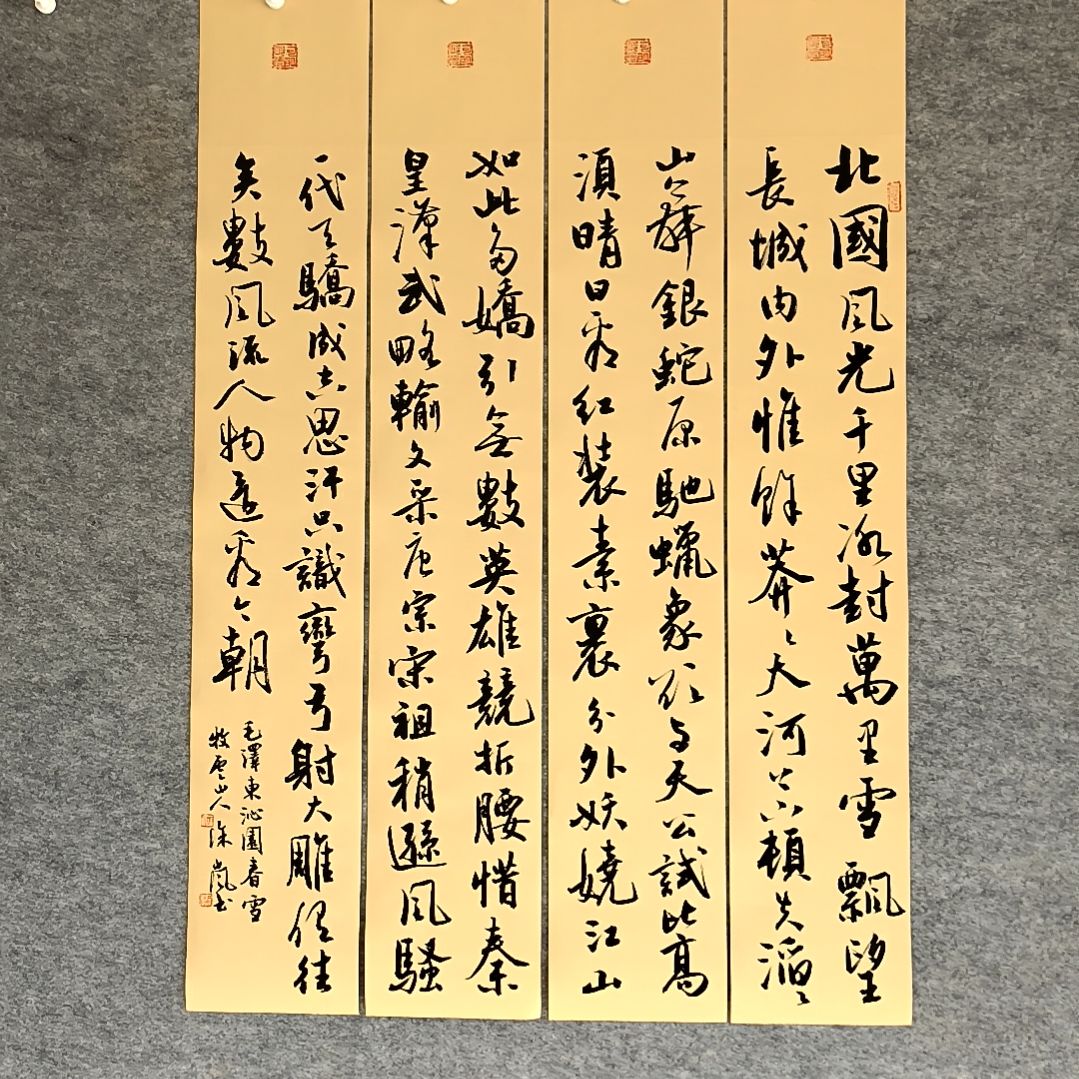 北國風光千里冰封萬里雪飄望
長城内外惟餘莽々大河上下頓失滔々
山舞銀蛇原馳蠟象欲与天公試比高
須晴日看紅裝素裹分外妖嬈江山
如此多嬌引無數英雄競折腰惜秦
皇漢武略輸文采唐宗宋祖稍遜風騷
一代天驕成吉思汗只識彎弓射大雕俱往
矣數風流人物還看今朝
毛澤東沁園春雪
牧雲山人徐嵐书